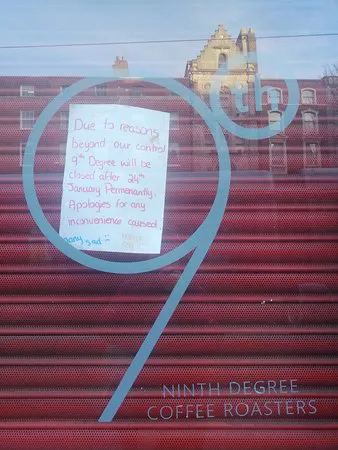 th
Due to reasons
beyond our control
9th Degree will be
closed after 24th
January Permenantly.
Apologies for any
inconvenience caused.
sad :(
NINTH DEGREE
COFFEE ROASTERS